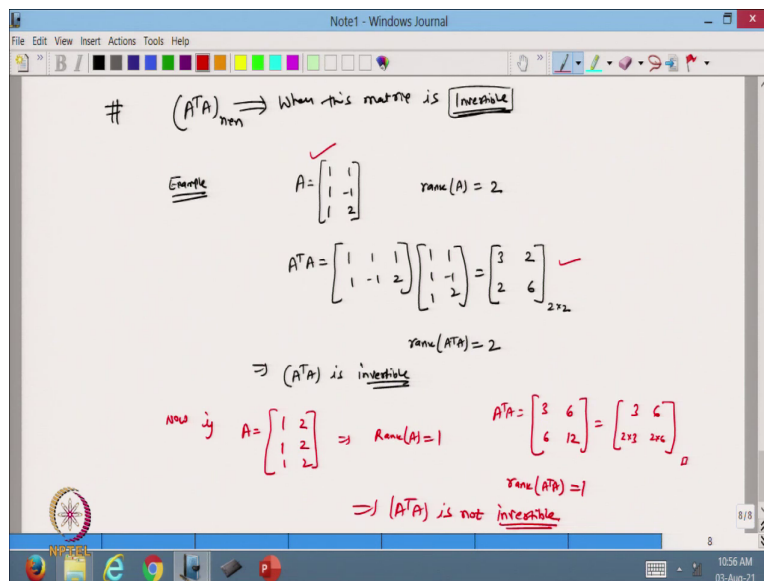 Note1 - Windows Journal
File Edit View Insert Actions Tools Help
# (AᵀA)ₙₓₙ ⟹ When this matrix is Invertible
Example A = [1 1; 1 -1; 1 2] rank(A) = 2
AᵀA = [1 1 1; 1 -1 2] [1 1; 1 -1; 1 2] = [3 2; 2 6] 2×2
rank(AᵀA) = 2
⇒ (AᵀA) is invertible
Now if A = [1 2; 1 2; 1 2] ⇒ Rank(A) = 1 AᵀA = [3 6; 6 12] = [3 6; 2×3 2×6]
rank(AᵀA) = 1
⇒ (AᵀA) is not invertible
NPTEL
8/8
8
10:56 AM
03-Aug-21